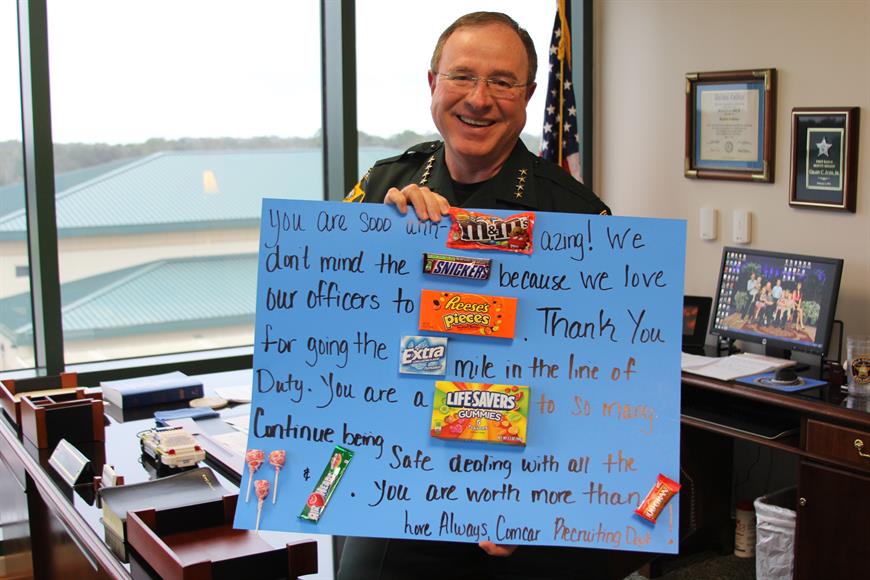 You are Sooo uhh- m&m's azing! We
don't mind the SNICKERS because we love
our officers to Reese's Pieces. Thank You
for going the Extra mile in the line of
Duty. You are a LIFE SAVERS GUMMIES to so many.
Continue being
Safe dealing with all the
&
. You are worth more than !
Love Always, Comcar Recruiting Dept